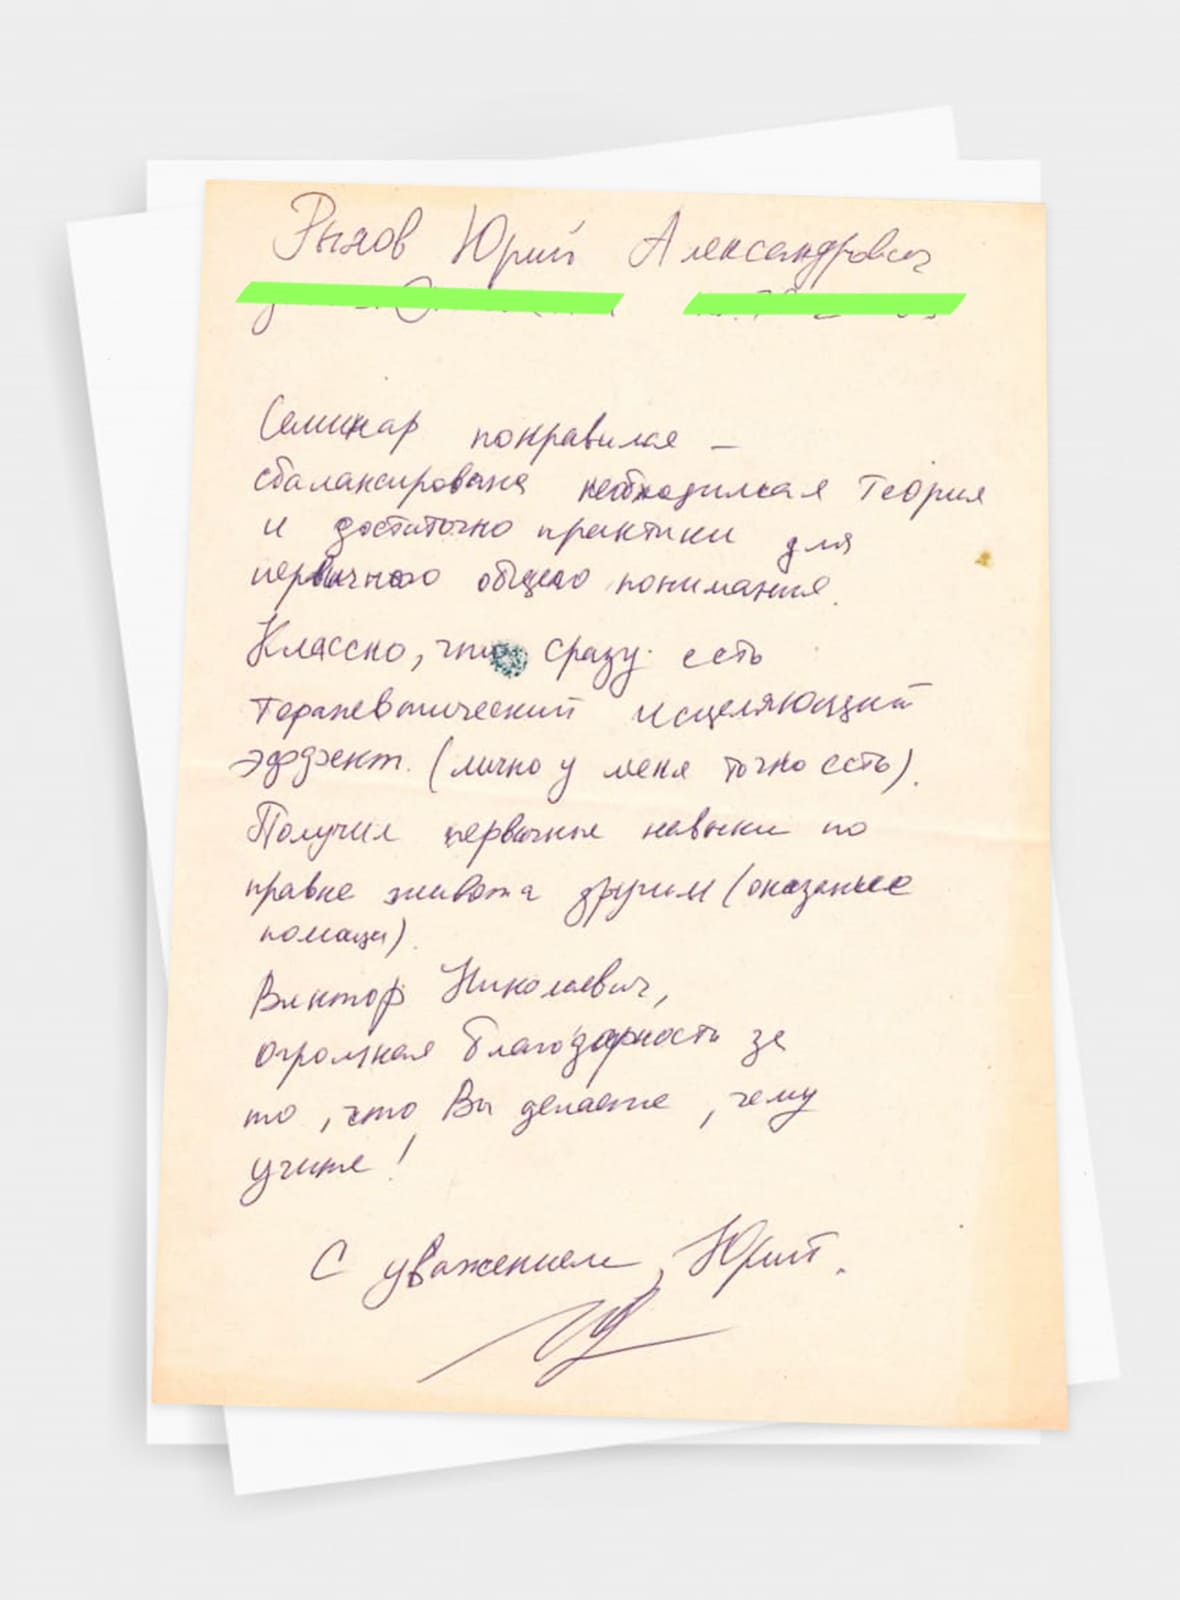 Рыков Юрий Александрович
Семинар понравился –
сбалансирована необходимая теория
и достаточно практики для
первичного общего понимания.
Классно, что сразу есть
терапевтический исцеляющий
эффект. (лично у меня точно есть).
Получил первичные навыки по
правке живота другим (оказанию
помощи).
Виктор Николаевич,
огромная благодарность за
то, что Вы делаете, чему
учите!
С уважением, Юрий.